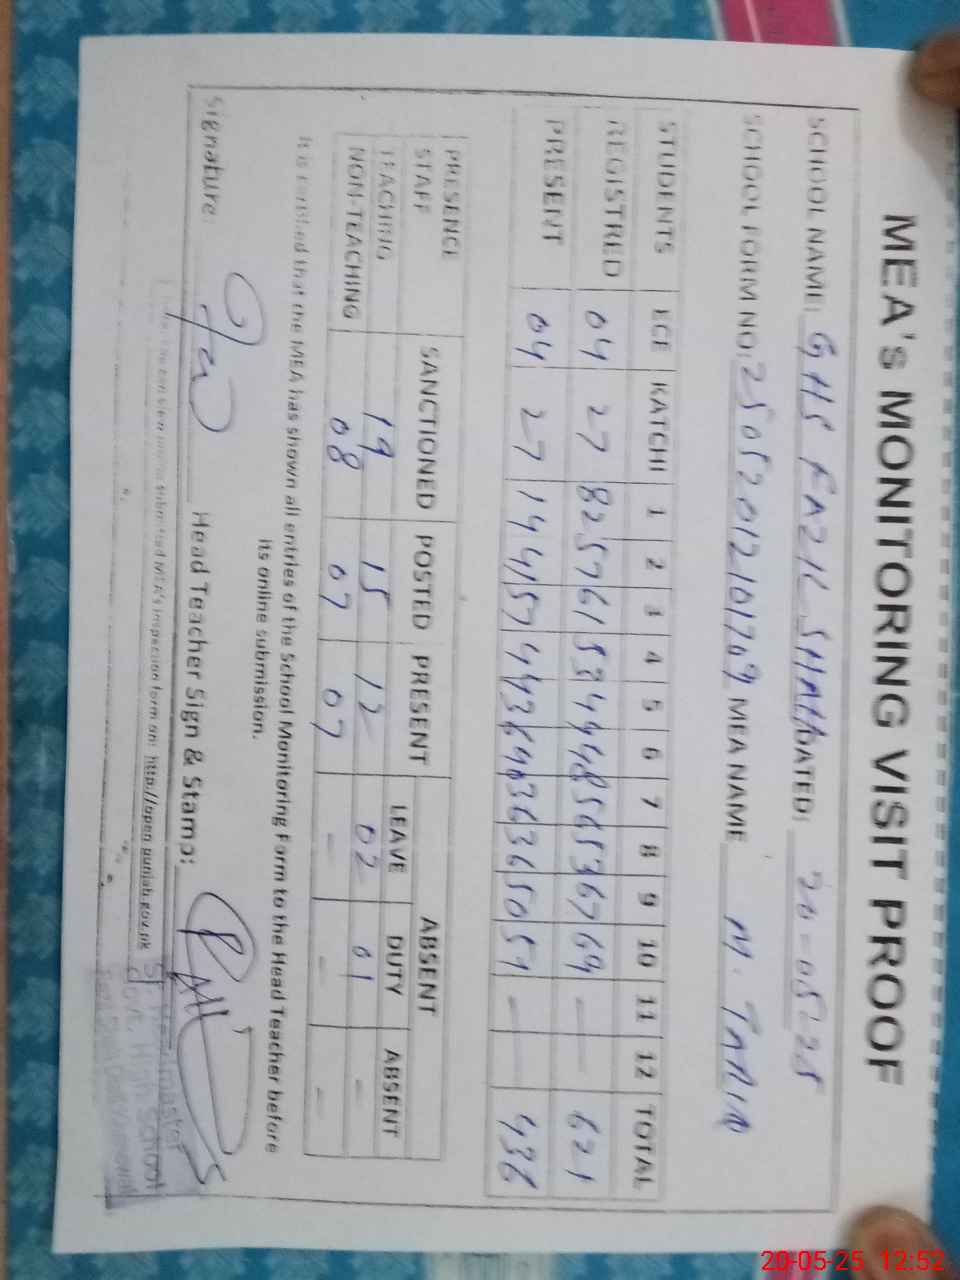 MEA's MONITORING VISIT PROOF
SCHOOL NAME: GHS FAZIL SHAH DATED: 20-05-25
SCHOOL FORM NO: 25052012101769 MEA NAME M. TARIQ
STUDENTS ECE KATCHI 1 2 3 4 5 6 7 8 9 10 11 12 TOTAL
REGISTRED 04 27 82 57 61 53 44 48 56 53 67 69 — — 621
PRESENT 04 27 — — 436
PRESENCE ABSENT
STAFF SANCTIONED POSTED PRESENT LEAVE DUTY ABSENT
TEACHING 19 15 12 02 01 -
NON-TEACHING 08 07 07 - - -
It is certified that the MEA has shown all entries of the School Monitoring Form to the Head Teacher before
its online submission.
Signature: Head Teacher Sign & Stamp:
submitted MEA's inspection form on: http://open.punjab.gov.pk
Sr. Headmaster
Govt. High School
20-05-25 12:52